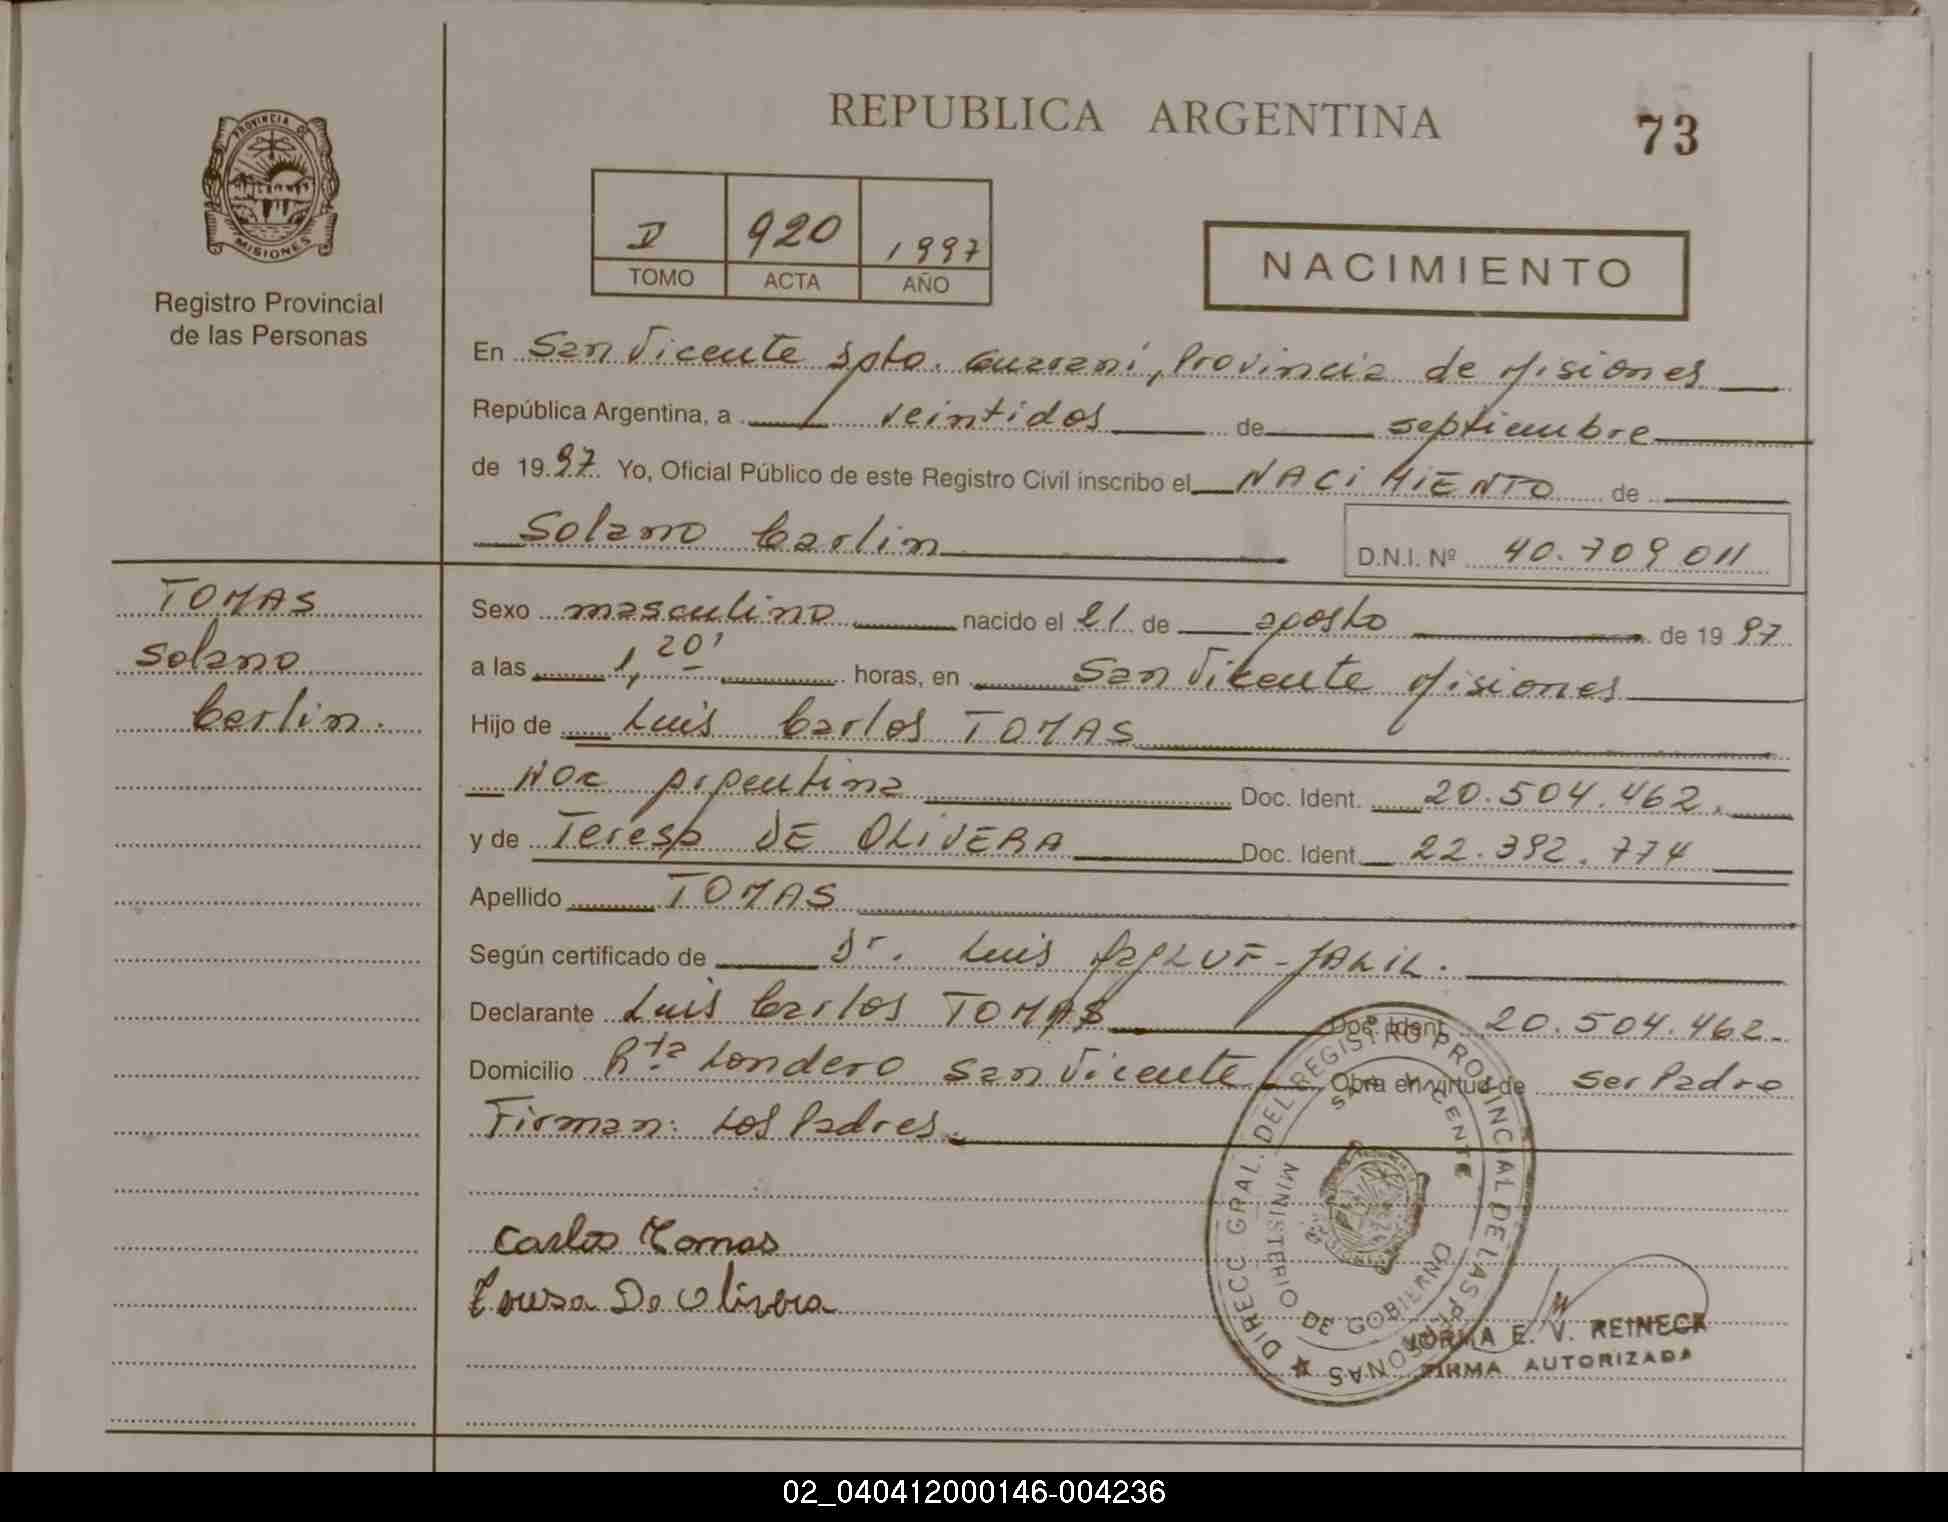 REPUBLICA ARGENTINA
73
PROVINCIA DE
MISIONES
Registro Provincial
de las Personas
D 920 1997
TOMO ACTA AÑO
NACIMIENTO
En San Vicente Dpto. Guaraní, Provincia de Misiones
República Argentina, a veintidos de septiembre
de 1997 Yo, Oficial Público de este Registro Civil inscribo el NACIMIENTO de
Solano Carlin
D.N.I. Nº 40.709011
TOMAS
Solano
Carlin.
Sexo masculino nacido el 21 de agosto de 1997
a las 1,20' horas, en San Vicente Misiones
Hijo de Luis Carlos TOMAS
Nac Argentina Doc. Ident. 20.504.462.
y de Teresa DE OLIVERA Doc. Ident. 22.392.774
Apellido TOMAS
Según certificado de Dr. Luis JALIL.
Declarante Luis Carlos TOMAS Doc. Ident. 20.504.462.
Domicilio Rta Londero San Vicente Obra en virtud de ser Padre
Firman: Los Padres.
Carlos Tomas
Teresa De Olivera
DIRECC GRAL. DEL REGISTRO PROVINCIAL DE LAS PERSONAS
SAN VICENTE
MINISTERIO DE GOBIERNO
NORMA E. V. REINECK
FIRMA AUTORIZADA
02_040412000146-004236